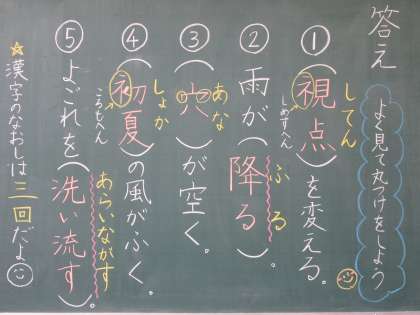 答え
よく見て丸つけをしよう
してん
①(視点)を変える。
しめすへん
ふる
②雨が(降る)。
あな
③(穴)が空く。
しょか
④(初夏)の風がふく。
ころもへん
あらいながす
⑤よごれを(洗い流す)。
☆漢字のなおしは三回だよ